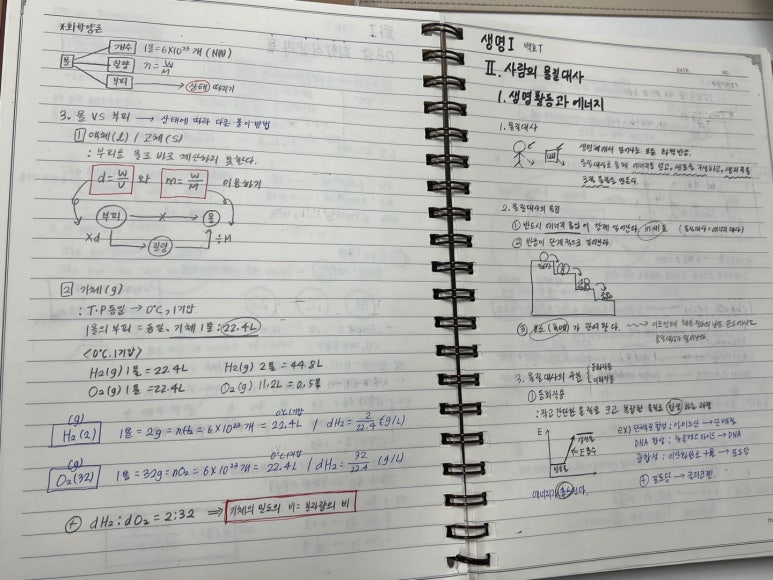 *화학양론
몰
개수 1몰=6×10²³개 (N/NA)
질량 n=w/M
부피 → 상태 따지기
3. 몰 VS 부피 → 상태에 따라 다른 풀이 방법
1 액체(l) / 고체(s)
: 부피로 몰로 바로 계산하지 못한다.
d=w/V 와 n=w/M 이용하기
부피 × 몰
×d 질량 ÷M
2 기체(g)
: T·P 동일 → 0℃, 1기압
1몰의 부피 = 동일, 기체 1몰 : 22.4L
<0℃, 1기압>
H2(g) 1몰 = 22.4L H2(g) 2몰 = 44.8L
O2(g) 1몰 = 22.4L O2(g) 11.2L = 0.5몰
(g) 0℃ 1기압
H2(2) 1몰 = 2g = nH2 = 6×10²³개 = 22.4L / dH2 = 2/22.4 (g/L)
(g) 0℃ 1기압
O2(32) 1몰 = 32g = nO2 = 6×10²³개 = 22.4L / dH2 = 32/22.4 (g/L)
+ dH2 : dO2 = 2:32 ⇒ 기체의 밀도의 비 = 분자량의 비
생명I 백호T
Ⅱ. 사람의 물질대사
1. 생명 활동과 에너지
1. 물질대사
생명체에서 일어나는 모든 화학반응.
물질대사를 통해 에너지를 얻고, 세포를 구성하고, 생리작용
조절 물질을 만든다.
2. 물질대사의 특징
① 반드시 에너지 출입이 함께 일어난다.
② 반응이 단계적으로 일어난다.
③ 효소(촉매)가 관여한다.
3. 물질대사의 구분 동화작용 이화작용
① 동화작용
: 작고 간단한 물질을 크고 복잡한 물질로 합성하는 과정
E 생성물 E 흡수 반응물
ex) 단백질 합성 : 아미노산 → 단백질
DNA 합성 : 뉴클레오타이드 → DNA
광합성 : 이산화탄소 + 물 → 포도당
+ 포도당 → 글리코젠
에너지가 흡수된다.